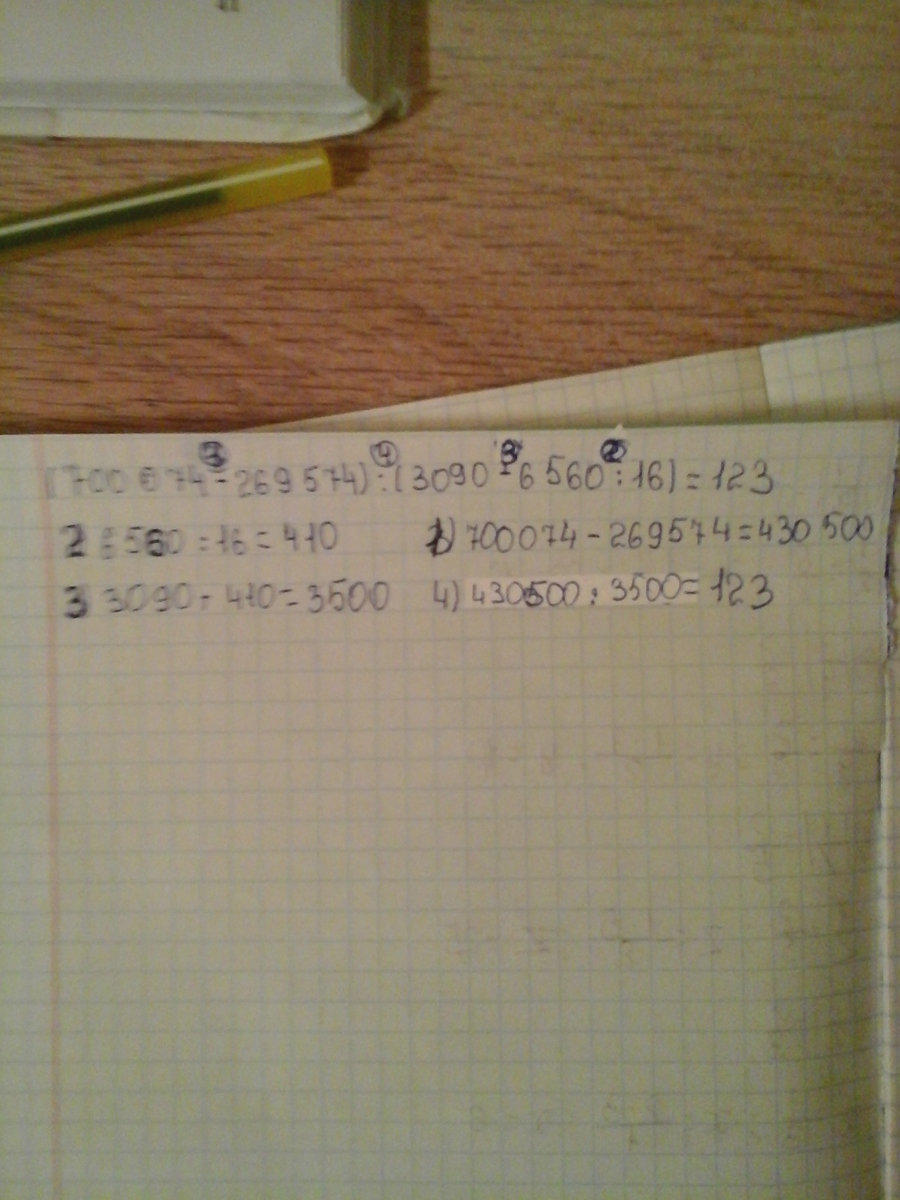 ① ④ 3 ②
(700 074 - 269 574) : (3090 - 6 560 : 16) = 123
2 6560 : 16 = 410 1) 700074 - 269574 = 430 500
3 3090 + 410 = 3500 4) 430500 : 3500 = 123